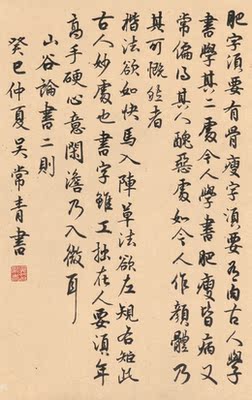 肥字須要有骨瘦字須要有肉古人學
書學其二處今人學書肥瘦皆病又
常偏得其人醜惡處如今人作顏體乃
其可慨然者
楷法欲如快馬入陣草法欲左規右矩此
古人妙處也書字雖工拙在人要須年
高手硬心意閑澹乃入微耳
山谷論書二則
癸巳仲夏吳常青書